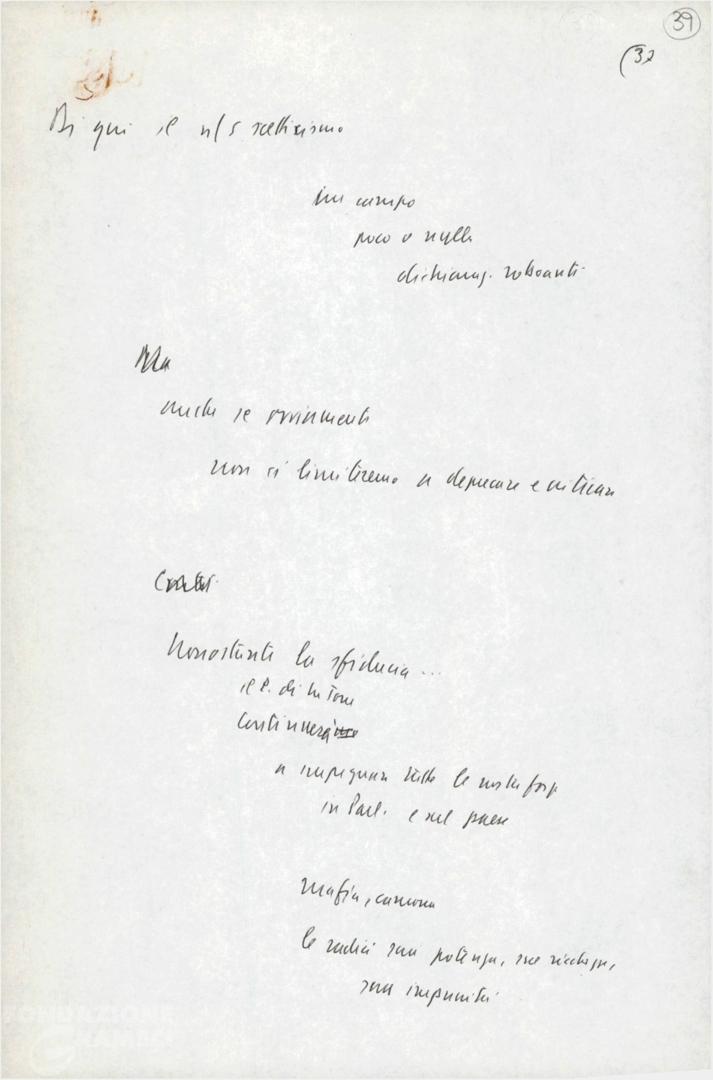 39
(32
Di qui il n/s scetticismo
in campo
poco o nulla
dichiaraz. roboanti
Ma
anche se ovviamente
non ci limiteremo a deprecare e criticare
Nonostante la sfiducia ...
il P. di la Torre
continuerà
a impegnare tutte le nostre forze
in Parl. e nel paese
mafia, camorra
le radici sua potenza, sue ricchezze,
sua impunità
FONDAZIONE
GRAMSCI